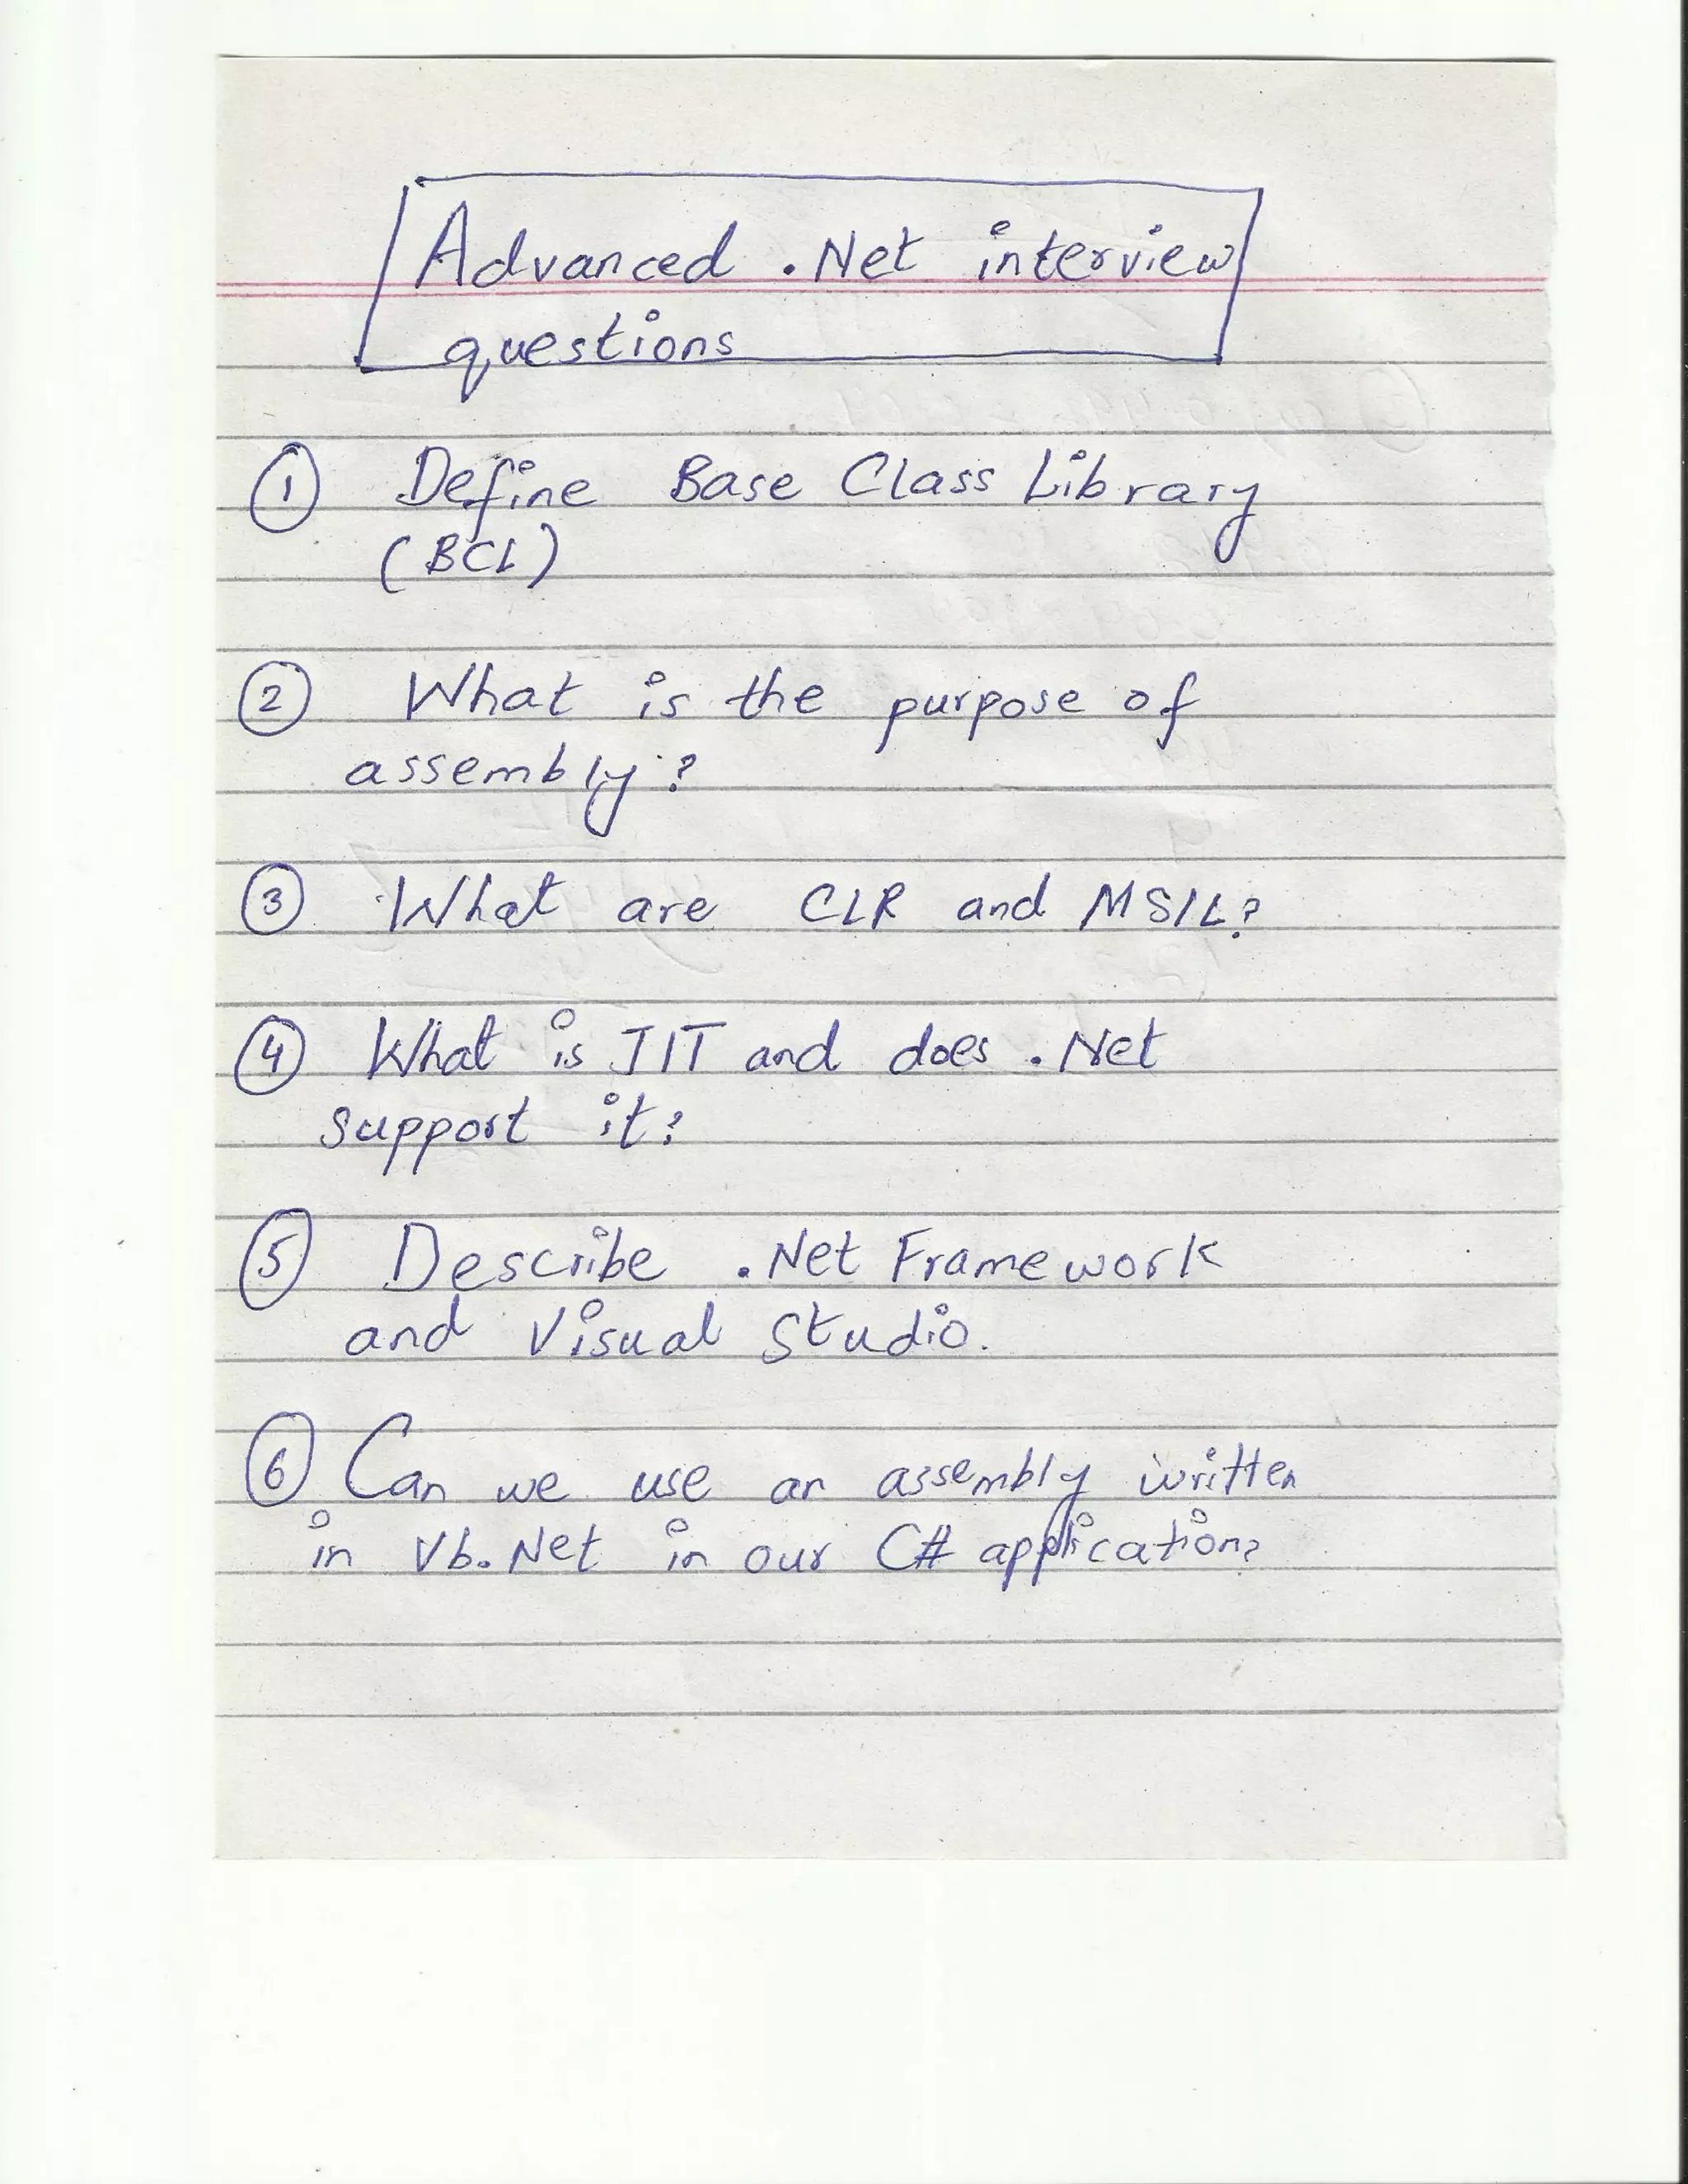 Advanced .Net interview
questions
1 Define Base Class Library
(BCL)
2 What is the purpose of
assembly?
3 What are CLR and MSIL?
4 What is JIT and does .Net
support it?
5 Describe .Net Framework
and Visual Studio.
6 Can we use an assembly written
in Vb.Net in our C# application?